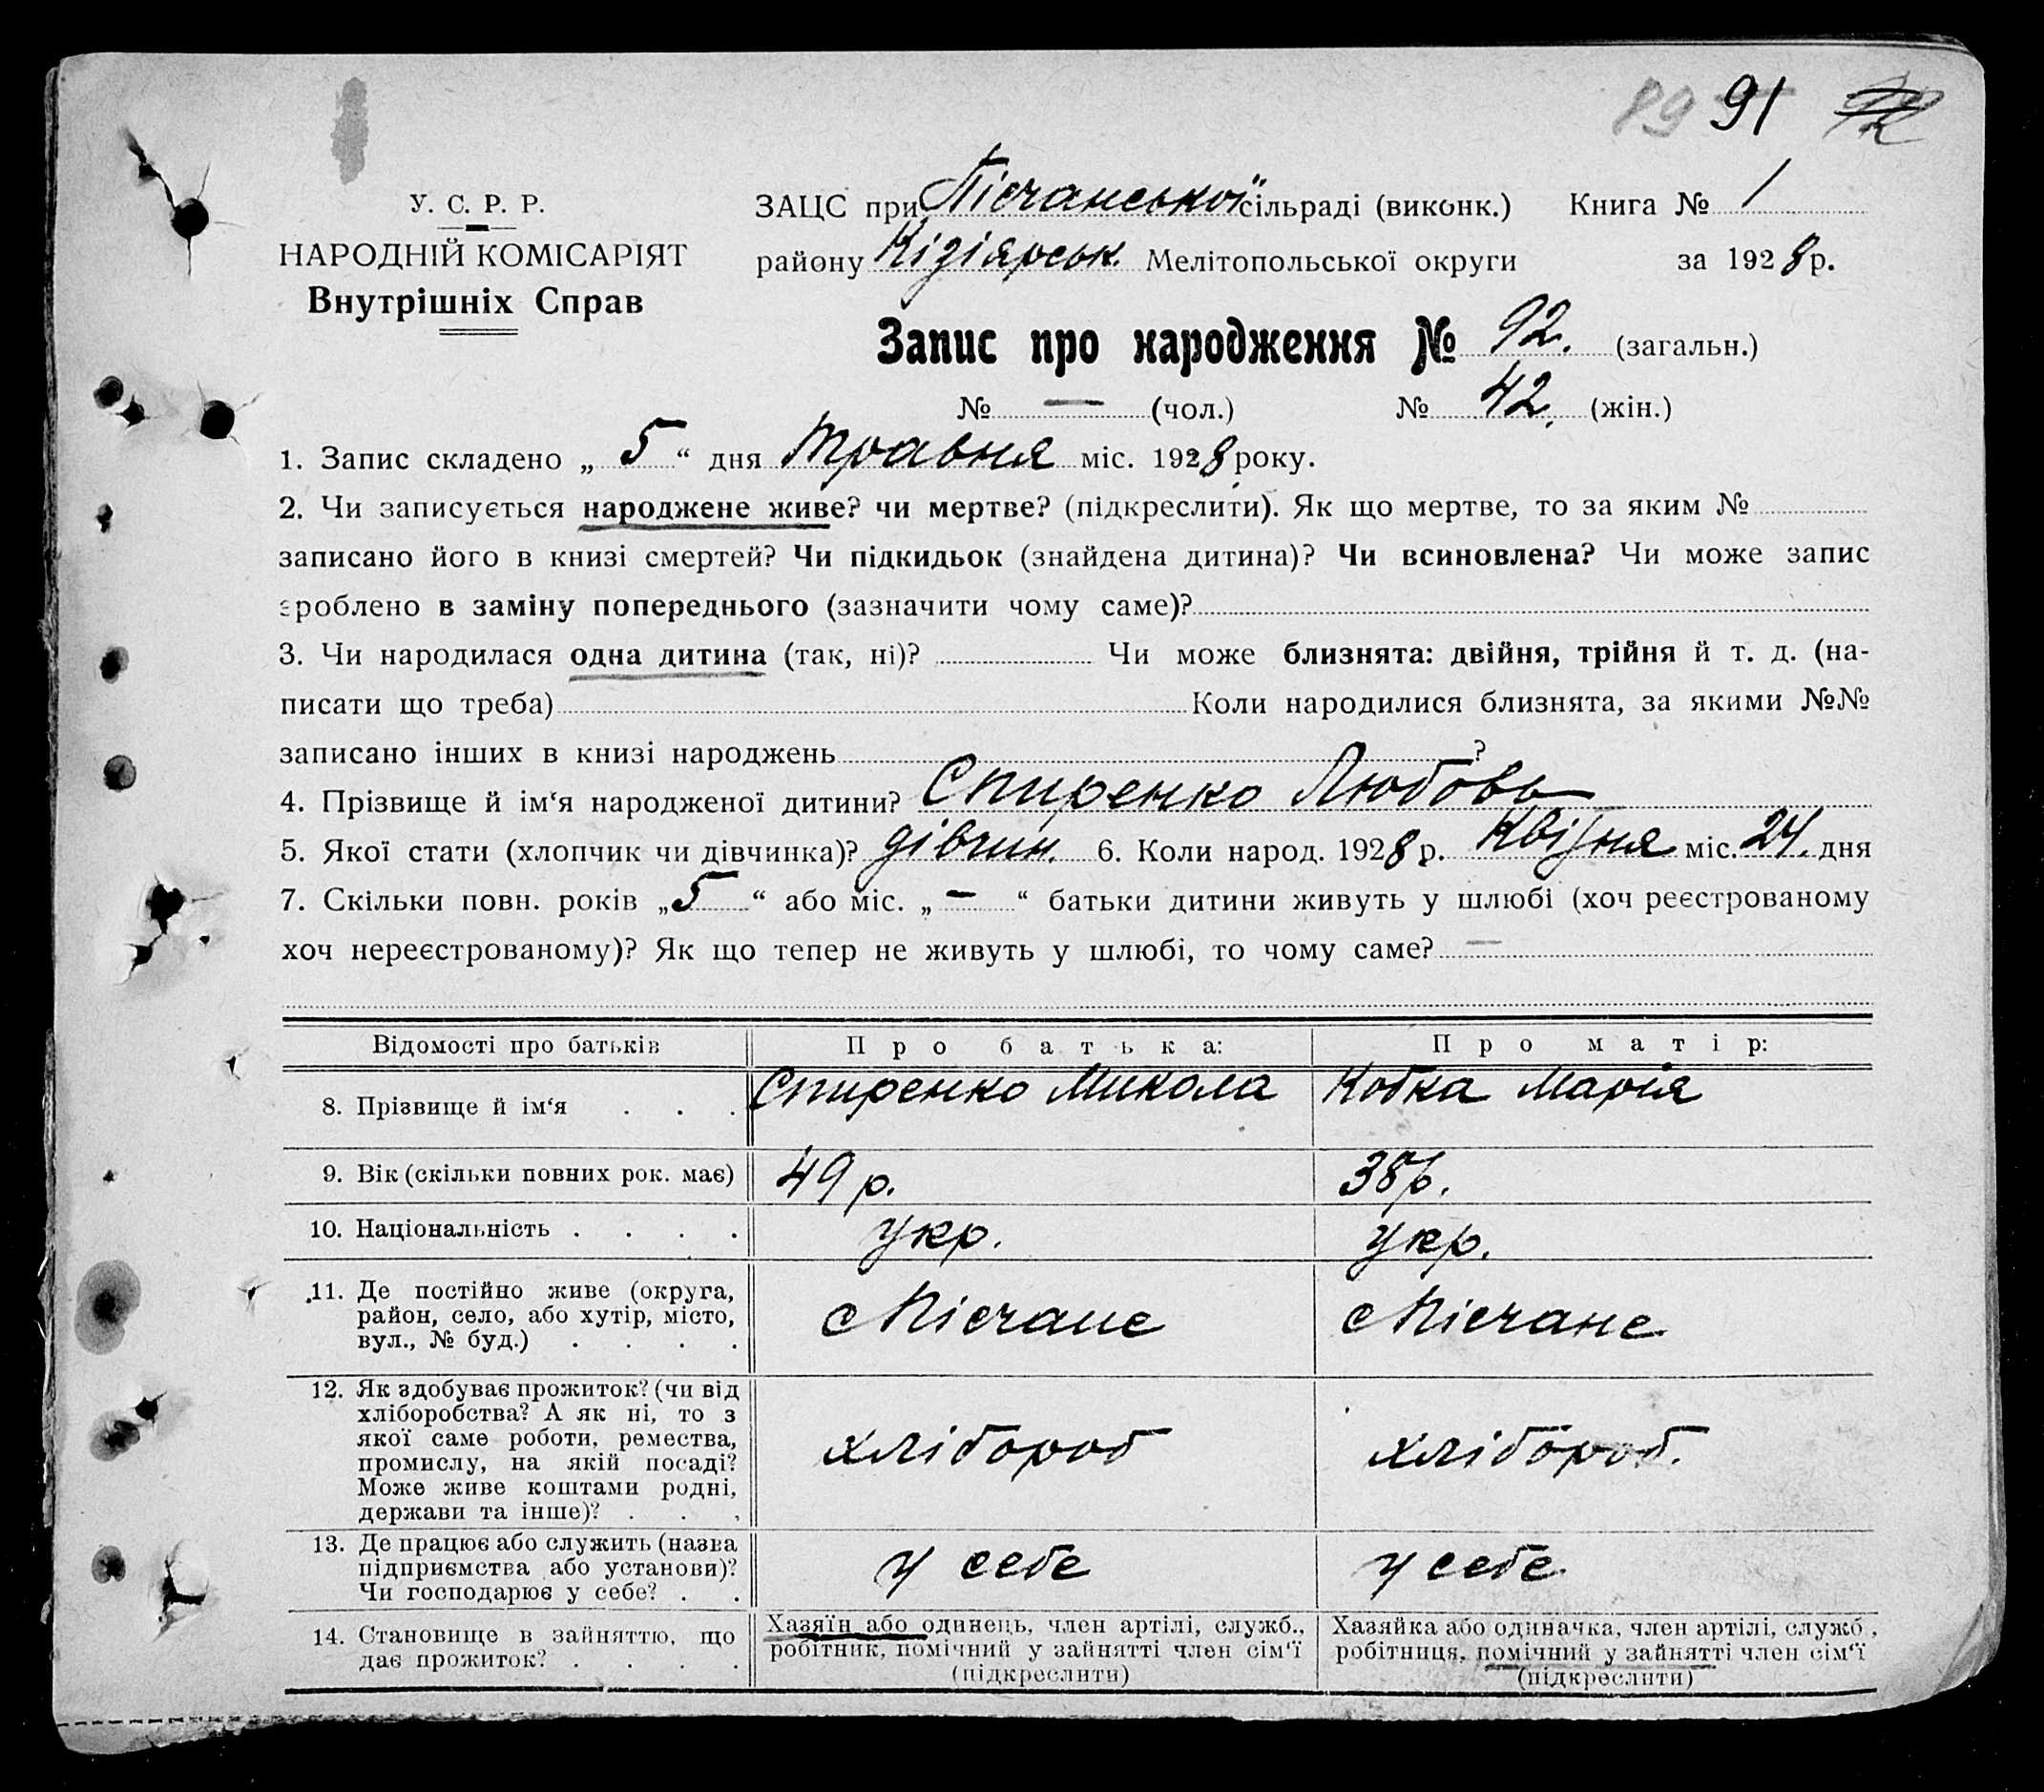 89 91
У. С. Р. Р.
НАРОДНІЙ КОМІСАРІЯТ
Внутрішніх Справ
ЗАЦС при Пісчанської сільраді (виконк.) Книга № 1
району Кізіярськ. Мелітопольської округи за 1928 р.
Запис про народження № 92. (загальн.)
№ — (чол.) № 42. (жін.)
1. Запис складено „ 5 “ дня Травня міс. 1928 року.
2. Чи записується народжене живе? чи мертве? (підкреслити). Як що мертве, то за яким №
записано його в книзі смертей? Чи підкидьок (знайдена дитина)? Чи всиновлена? Чи може запис
зроблено в заміну попереднього (зазначити чому саме)?
3. Чи народилася одна дитина (так, ні)? Чи може близнята: двійня, трійня й т. д. (на-
писати що треба) Коли народилися близнята, за якими №№
записано інших в книзі народжень ?
4. Прізвище й ім‘я народженої дитини? Спиренко Любовь
5. Якої стати (хлопчик чи дівчинка)? дівчин. 6. Коли народ. 1928 р. Квітня міс. 24. дня
7. Скільки повн. років „ 5 “ або міс. „ — “ батьки дитини живуть у шлюбі (хоч реєстрованому
хоч нереєстрованому)? Як що тепер не живуть у шлюбі, то чому саме? —
Відомості про батьків Про батька: Про матір:
8. Прізвище й ім‘я . . . Спиренко Микола Кобка Марія
9. Вік (скільки повних рок. має) 49 р. 38 р.
10. Національність . . . . укр. укр.
11. Де постійно живе (округа,
район, село, або хутір, місто,
вул., № буд.) . . . .
с Пісчане с Пісчане
12. Як здобуває прожиток? (чи від
хліборобства? А як ні, то з
якої саме роботи, ремества,
промислу, на якій посаді?
Може живе коштами родні,
держави та інше)? . . .
хлібороб хлібороб.
13. Де працює або служить (назва
підприємства або установи)?
Чи господарює у себе? . .
у себе у себе.
14. Становище в зайняттю, що
дає прожиток? . . . .
Хазяїн або одинець, член артілі, служб.,
робітник, помічний у зайнятті член сім‘ї
(підкреслити)
Хазяйка або одиначка, член артілі, служб.,
робітниця, помічний у зайнятті член сім‘ї
(підкреслити)